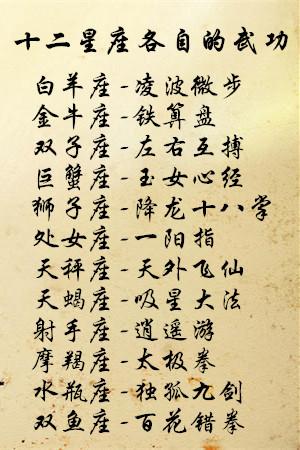 十二星座各自的武功
白羊座-凌波微步
金牛座-铁算盘
双子座-左右互搏
巨蟹座-玉女心经
狮子座-降龙十八掌
处女座-一阳指
天秤座-天外飞仙
天蝎座-吸星大法
射手座-逍遥游
摩羯座-太极拳
水瓶座-独孤九剑
双鱼座-百花错拳